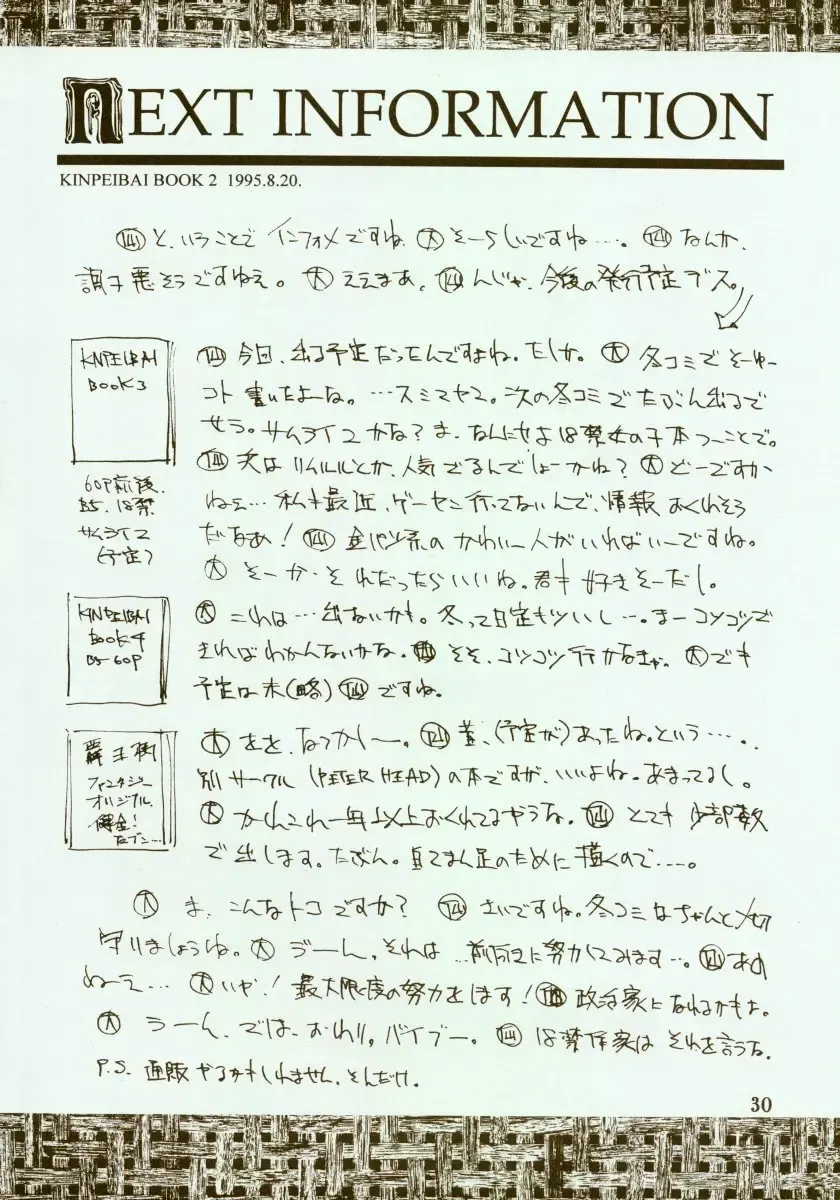 NEXT INFORMATION
KINPEIBAI BOOK 2 1995.8.20.
と、いうことで インフォメですね。 大 そーらしいですね…。 なんか、
調子悪そうですねえ。 大 ええまあ。 んじゃ、今後の発行予定デス。
KINPEIBAI
BOOK3
60P前後.
B5. 18禁
サムライ2
(予定)
今回、出る予定だったんですよね。たしか。 大 冬コミでそーゆー
コト書いたよーな。…スミマセン。次の冬コミでたぶん出るで
せう。サムライ2かな?ま、なんにせよ18禁女の子本つーことで。
次はリムルルとか、人気でるんでしょーかね? 大 どーですか
ねぇ…私も最近、ゲーセン行ってないんで、情報おくれそう
だなあ! 金パツ系のかわいー人がいればいーですね。
大 そーか・それだったらいいね。君も好きそーだし。
KINPEIBAI
BOOK4
B5-60P
大 これは…出ないかも。冬って日定もツいし…。まーコツコツで
きればわかんないかな。 そそ、コツコツ行かなきゃ。 大 でも
予定は未(略) ですね。
覇王樹
ファンタジー
オリジナル
大 をを、なつかしー。 昔、(予定が)あったね。という….
別サークル (PETER HEAD) の本ですが、いいよね。あまってるし。
大 かれこれ一年以上おくれてるやうな。 とても少部数
で出します。たぶん。自己まん足のために描くので…。
大 ま、こんなトコですか? さいですね。冬コミはちゃんと〆切
守りましょうね。 大 うーん、それは…前向きに努力してみます…。 あの
ねーえ… 大 いや!最大限度の努力をします! 政治家になれるかもよ。
大 うーん、では、おわり。バイブー。 18禁作家はそれを言うな.
P.S. 通販やるかもしれません。そんだけ.
30